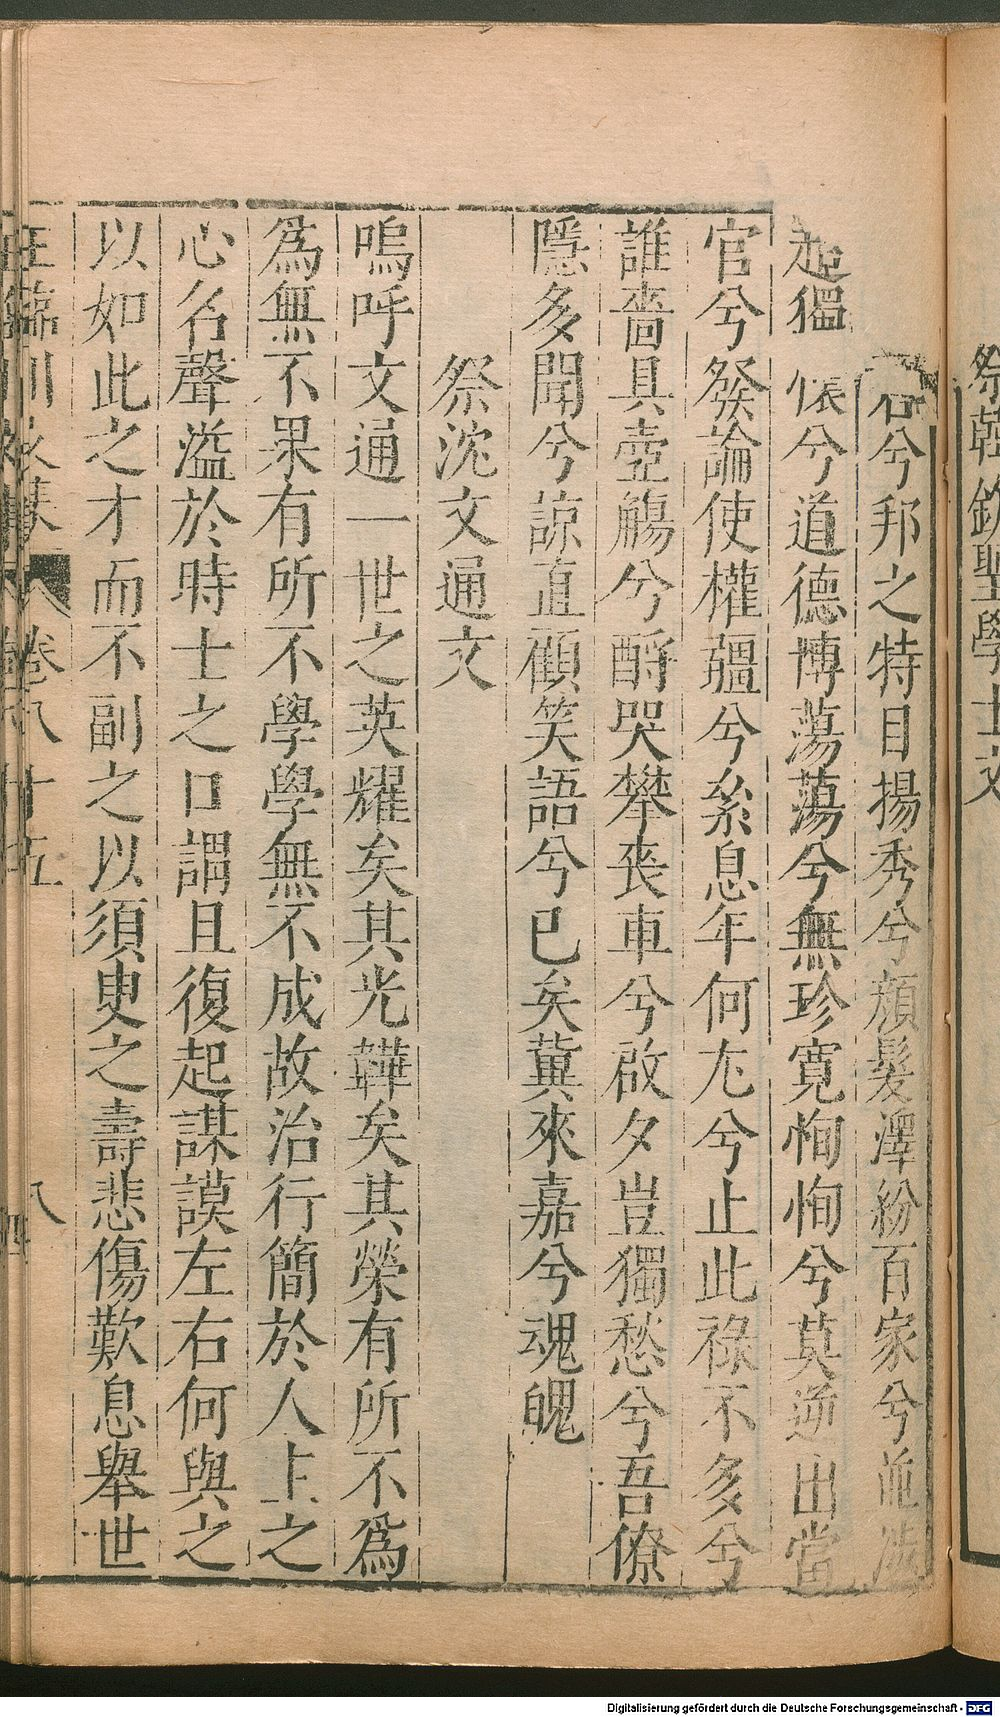 祭韓欽聖學士文
石兮邦之特目揚秀兮顔髮澤紛百家兮並
獨懷兮道德博蕩蕩兮無珍寛恂恂兮莫逆出當
官兮發論使權彊兮累息年何尢兮止此祿不多兮
誰嗇具壺觴兮酹哭攀喪車兮啟夕豈獨愁兮吾僚
隱多聞兮諒直顧笑語兮已矣冀來嘉兮魂魄
祭沈文通文
嗚呼文通一世之英耀矣其光韡矣其榮有所不爲
爲無不果有所不學學無不成故治行簡於人主之
心名聲溢於時士之口謂且復起謀謨左右何與之
以如此之才而不副之以須臾之壽悲傷歎息舉世
王臨川文集 卷八十五 八
Digitalisierung gefördert durch die Deutsche Forschungsgemeinschaft - DFG